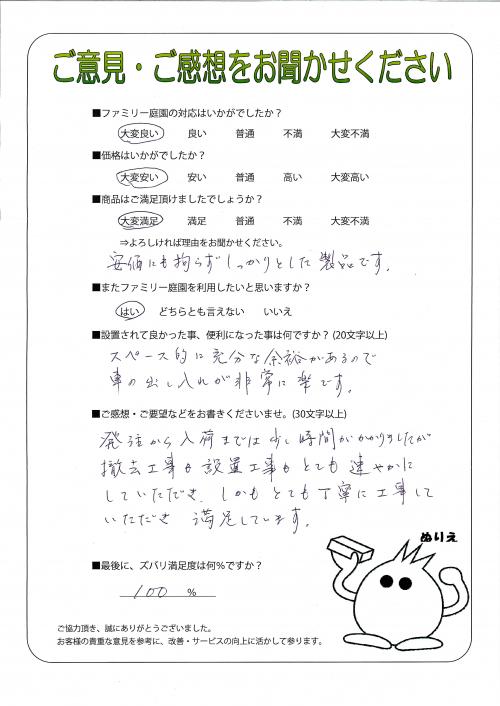 ご意見・ご感想をお聞かせください
■ファミリー庭園の対応はいかがでしたか？
大変良い 良い 普通 不満 大変不満
■価格はいかがでしたか？
大変安い 安い 普通 高い 大変高い
■商品はご満足頂けましたでしょうか？
大変満足 満足 普通 不満 大変不満
⇒よろしければ理由をお聞かせください。
安価にも拘らずしっかりとした製品です。
■またファミリー庭園を利用したいと思いますか？
はい どちらとも言えない いいえ
■設置されて良かった事、便利になった事は何ですか？(20文字以上)
スペース的に充分な余裕があるので
車の出し入れが非常に楽です。
■ご感想・ご要望などをお書きくださいませ。(30文字以上)
発注から入荷までは少し時間がかかりましたが
撤去工事も設置工事もとても速やかに
していただき、しかもとても丁寧に工事して
いただき 満足しています。
ぬりえ
■最後に、ズバリ満足度は何%ですか？
100 %
ご協力頂き、誠にありがとうございました。
お客様の貴重な意見を参考に、改善・サービスの向上に活かして参ります。